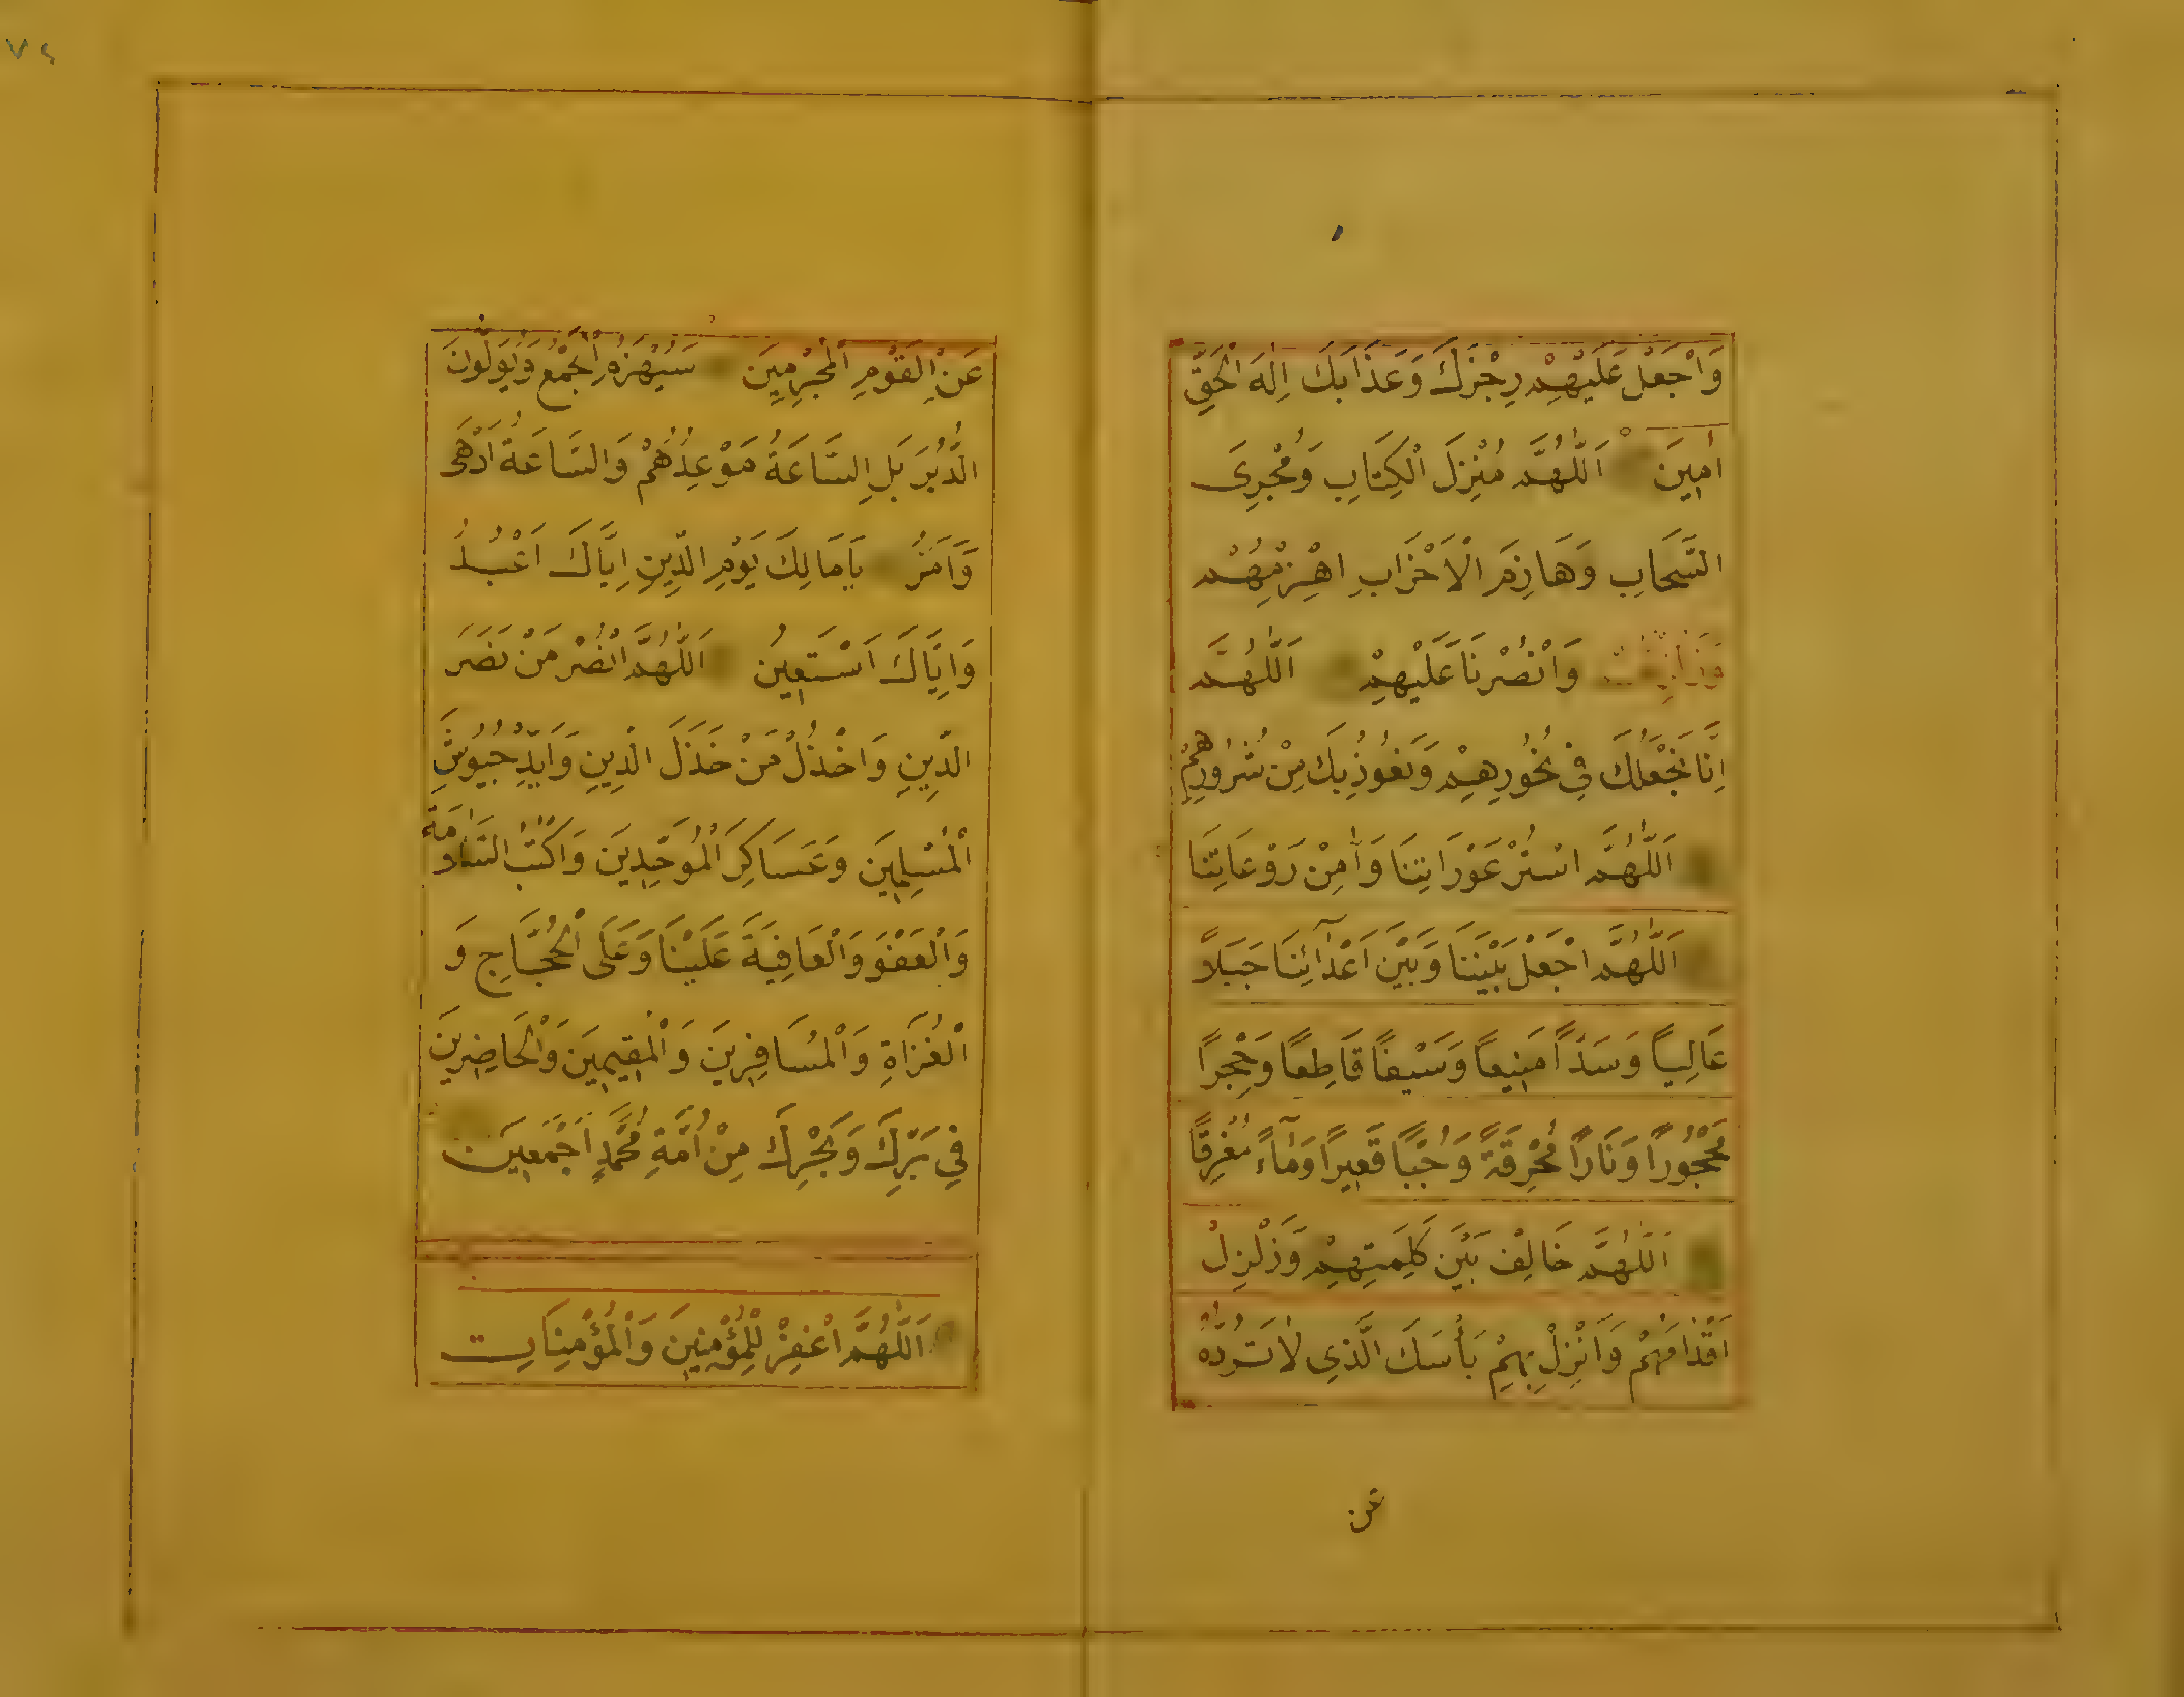 وَاجْعَلْ عَلَيْهِمْ رِجْزَكَ وَعَذَابَكَ اِلٰهَ الْحَقِّ
اٰمِينَ اَللّٰهُمَّ مُنْزِلَ الْكِتَابِ وَمُجْرِىَ
السَّحَابِ وَهَازِمَ الْاَحْزَابِ اهْزِمْهُمْ
وَانْصُرْنَا عَلَيْهِمْ اَللّٰهُمَّ
اِنَّا نَجْعَلُكَ فِي نُحُورِهِمْ وَنَعُوذُ بِكَ مِنْ شُرُورِهِمْ
اَللّٰهُمَّ اسْتُرْ عَوْرَاتِنَا وَاٰمِنْ رَوْعَاتِنَا
اَللّٰهُمَّ اجْعَلْ بَيْنَنَا وَبَيْنَ اَعْدَآئِنَا جَبَلاً
عَالِياً وَسَدّاً مَنِيعاً وَسَيْفاً قَاطِعاً وَحِجْراً
مَحْجُوراً وَنَاراً مُحْرِقَةً وَجُبّاً قَعِيراً وَمَآءً مُغْرِقًا
اَللّٰهُمَّ خَالِفْ بَيْنَ كَلِمَتِهِمْ وَزَلْزِلْ
اَقْدَامَهُمْ وَاَنْزِلْ بِهِمْ بَأْسَكَ الَّذِى لاٰ تَرُدُّهُ
عن
٧٤
عَنِ الْقَوْمِ الْمُجْرِمِينَ سَيُهْزَمُ الْجَمْعُ وَيُوَلُّونَ
الدُّبُرَ بَلِ السَّاعَةُ مَوْعِدُهُمْ وَالسَّاعَةُ اَدْهٰى
وَاَمَرُّ يَا مَالِكَ يَوْمِ الدِّينِ اِيَّاكَ اَعْبُدُ
وَاِيَّاكَ اَسْتَعِينُ اَللّٰهُمَّ انْصُرْ مَنْ نَصَرَ
الدِّينِ وَاخْذُلْ مَنْ خَذَلَ الدِّينِ وَاَيِّدْ جُيُوشَ
الْمُسْلِمِينَ وَعَسَاكِرَ الْمُوَحِّدِينَ وَاكْتُبِ السَّلاَمَةَ
وَالْعَفْوَ وَالْعَافِيَةَ عَلَيْنَا وَعَلَى الْحُجَّاجِ وَ
الْغُزَاةِ وَالْمُسَافِرِينَ وَالْمُقِيمِينَ وَالْحَاضِرِينَ
فِي بَرِّكَ وَبَحْرِكَ مِنْ اُمَّةِ مُحَمَّدٍ اَجْمَعِينَ
اَللّٰهُمَّ اغْفِرْ لِلْمُؤْمِنِينَ وَالْمُؤْمِنَاتِ